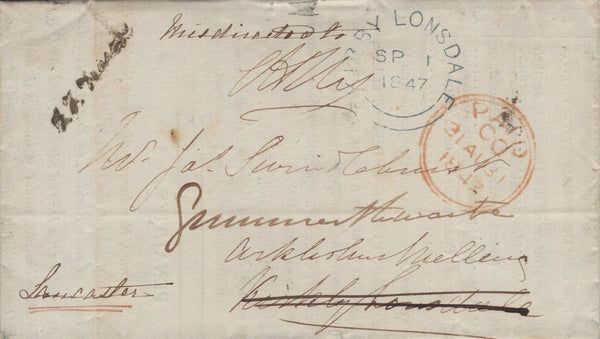 Misdirected to
KIRKBY LONSDALE
SP 1
1847
PAID
CO
31 AU 31
1847
Mr Jas Swindlehurst
Summersthwaite
Arkholme Melling
Kirkby Lonsdale
Lancaster